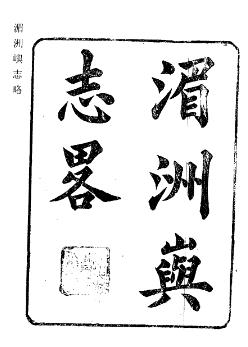 湄洲嶼志略
湄洲嶼
志畧